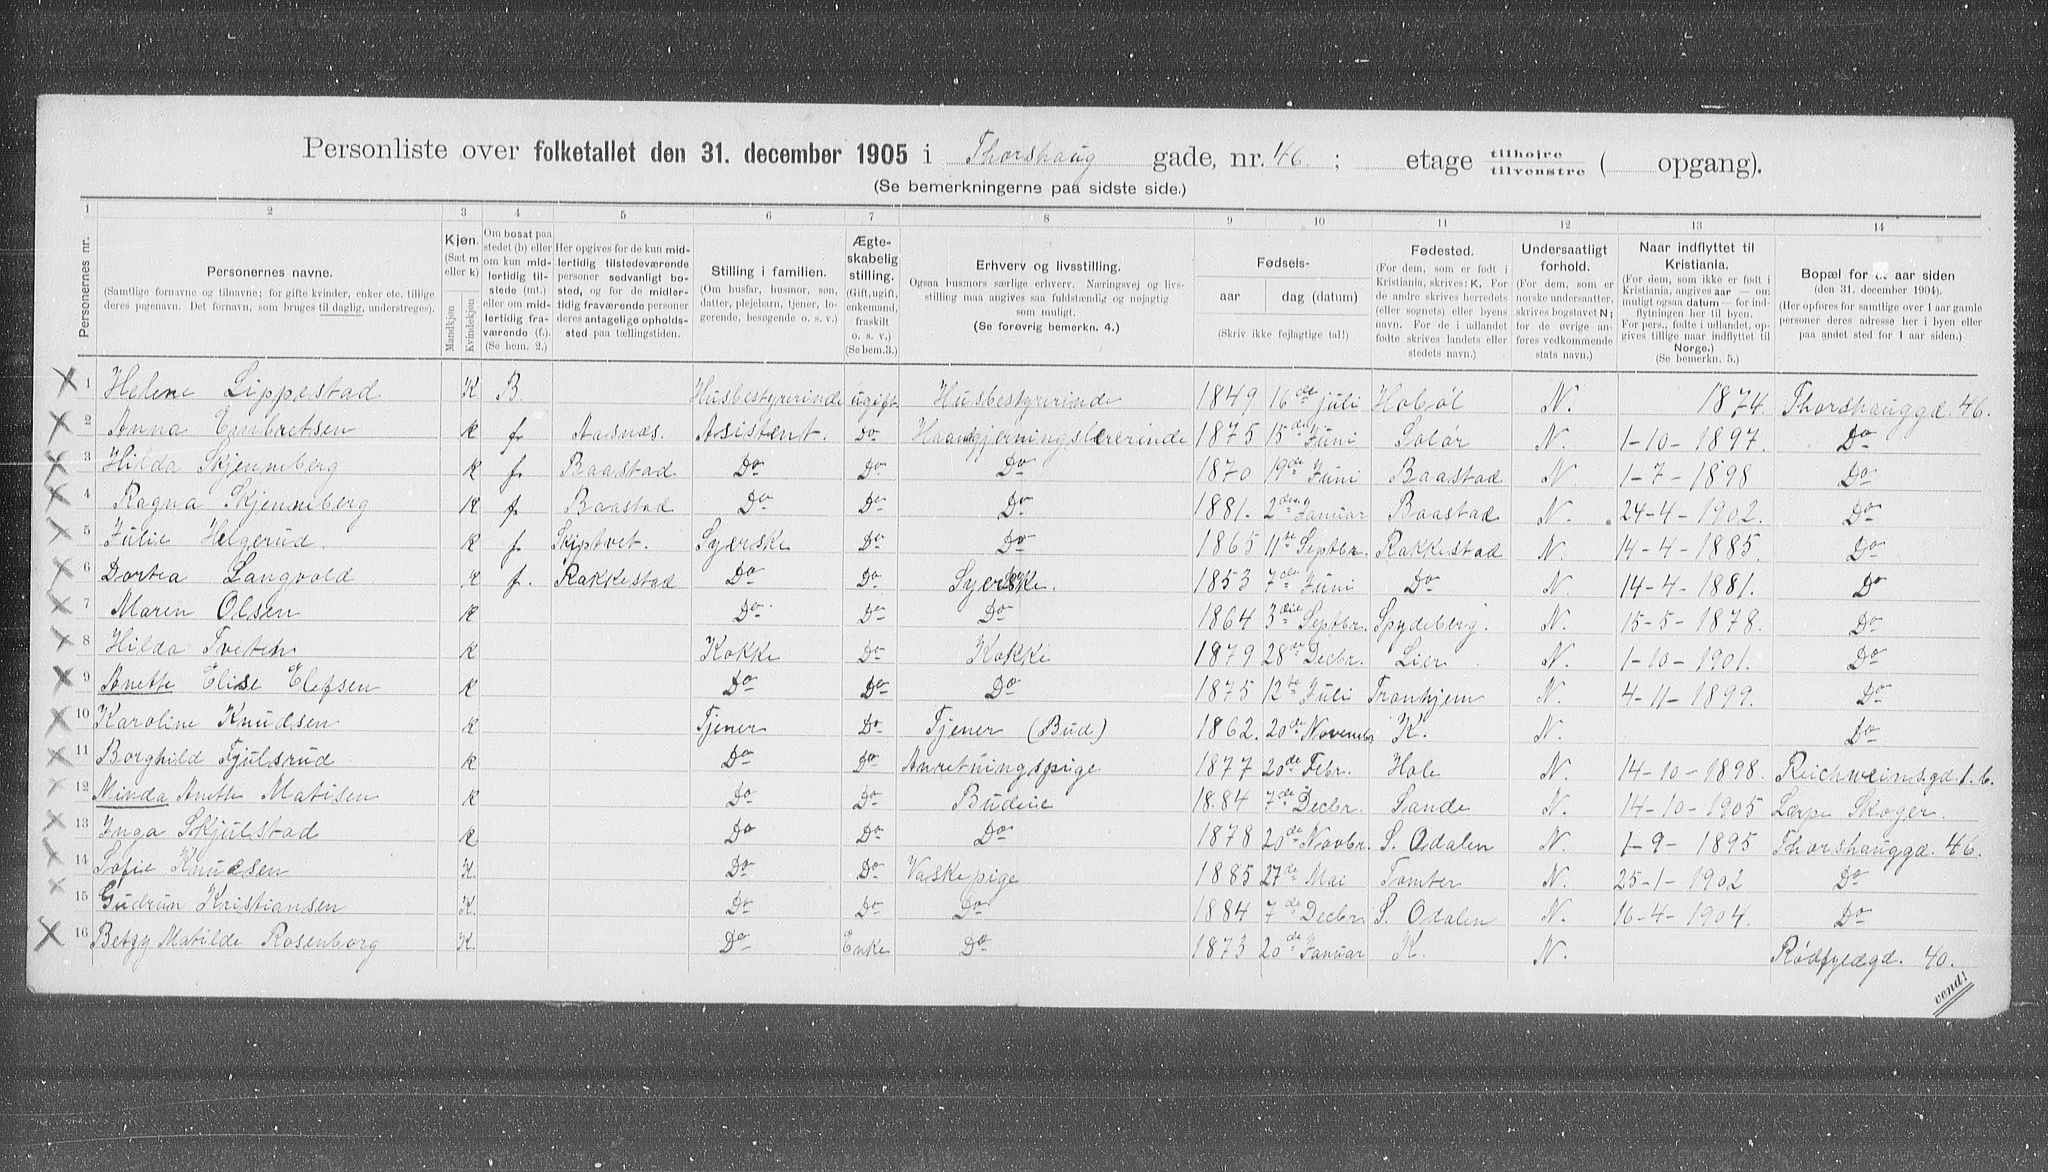 Personliste over folketallet den 31. december 1905 i Thorshaug gade, nr. 46 ; etage tilhøjre tilvenstre ( opgang).
(Se bemerkningerne paa sidste side.)
1 2 3 4 5 6 7 8 9 10 11 12 13 14
Personernes nr.
Personernes navne.
(Samtlige fornavne og tilnavne; for gifte kvinder, enker etc. tillige
deres pigenavn. Det fornavn, som bruges til daglig, understreges).
Kjøn.
(Sæt m
eller k)
Mandkjøn
Kvindekjøn
Om bosat paa
stedet (b) eller
om kun mid-
lertidig til-
stede (mt.)
eller om mid-
lertidig fra-
værende (f.).
(Se bem. 2.)
Her opgives for de kun mid-
lertidig tilstedeværende
personer sedvanligt bo-
sted, og for de midler-
tidig fraværende personer
deres antagelige opholds-
sted paa tællingstiden.
Stilling i familien.
(Om husfar, husmor, søn,
datter, plejebarn, tjener, lo-
gerende, besøgende o. s. v.)
Ægte-
skabelig
stilling.
(Gift, ugift,
enkemand,
fraskilt
o. s. v.)
(Se bem. 3.)
Erhverv og livsstilling.
Ogsaa husmors særlige erhverv. Næringsvej og livs-
stilling maa angives saa fuldstændig og nøjagtig
som muligt.
(Se forøvrig bemerkn. 4.)
Fødsels-
aar
dag (datum)
(Skriv ikke fejlagtige tal!)
Fødested.
(For dem, som er født i
Kristiania, skrives: K. For
de andre skrives herredets
(eller sognets) eller byens
navn. For de i udlandet
fødte skrives landets eller
stedets navn.)
Undersaatligt
forhold.
(For dem, som er
norske undersaatter,
skrives bogstavet N;
for de øvrige an-
føres vedkommende
stats navn.)
Naar indflyttet til
Kristiania.
(For dem, som ikke er født i
Kristiania, angives aar — om
muligt ogsaa datum — for ind-
flytningen her til byen.
For pers., fødte i udlandet, op-
gives tillige naar indflyttet til
Norge.)
(Se bemerkn. 5.)
Bopæl for et aar siden
(den 31. december 1904).
(Her opføres for samtlige over 1 aar gamle
personer deres adresse her i byen eller
paa andet sted for 1 aar siden.)
1 Helene Lippestad K B. Husbestyrerinde ugift. Husbestyrerinde 1849 16de juli Hobøl N. 1874. Thorshauggd. 46.
2 Anna Embretsen k f. Aasnæs. Asistent. Do Haandgjerningslærerinde 1875 15de Juni Solør N. 1-10-1897. Do
3 Hilda Skjenneberg k f. Baastad Do Do Do 1870 19de Juni Baastad N 1-7-1898 Do
4 Ragna Skjenneberg k f. Baastad Do Do Do 1881. 2den Januar Baastad N. 24-4-1902. Do
5 Julie Helgerud k f Skiptvet. Syerske Do Do 1865 11te Septbr. Rakkestad N. 14-4-1885. Do
6 Dortea Langvold k f. Rakkestad Do Do Syerske. 1853 7de Juni Do N 14-4-1881. Do
7 Maren Olsen k Do Do Do 1864 3die Septbr. Spydeberg. N. 15-5-1878. Do
8 Hilda Tveten k Kokke Do Kokke 1879 28de Decbr. Lier N. 1-10-1901. Do
9 Anette Elise Elefsen k Do Do Do 1875 12te Juli Tronhjem N. 4-11-1899. Do
10 Karoline Knudsen k Tjener Do Tjener (Bud) 1862. 20de Novembr K. N. Do
11 Borghild Fjulsrud k Do Do Anretningspige 1877 20de Febr. Hole N. 14-10-1898. Reichweinsgd. 1. b.
12 Ninda Anette Matisen k Do Do Budeie 1884 7de Decbr. Sande N. 14-10-1905 Larpe Skoger.
13 Inga Skjulstad k Do Do Do 1878 20de Novbr. S. Odalen N. 1-9-1895 Thorshauggd. 46.
14 Sofie Knudsen K. Do Do Vaskepige 1885 27de Mai Tomter N. 25-1-1902 Do
15 Gudrun Kristiansen K. Do Do Do 1884 7de Decbr. S. Odalen N. 16-4-1904. Do
16 Betzy Matilde Rosenborg K. Do Enke Do 1873 20de Januar K. N. Rødfyldgd. 40.
vend!